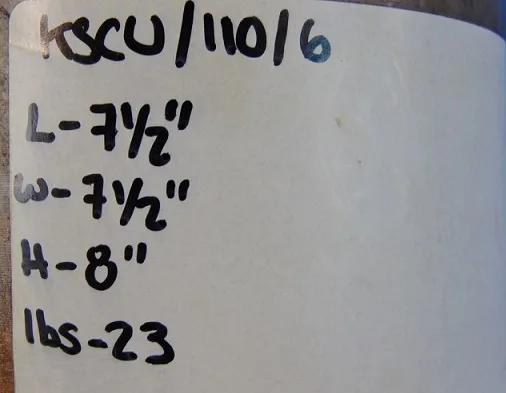 KSCU/110/6
L-7 1/2"
W-7 1/2"
H-8"
lbs-23